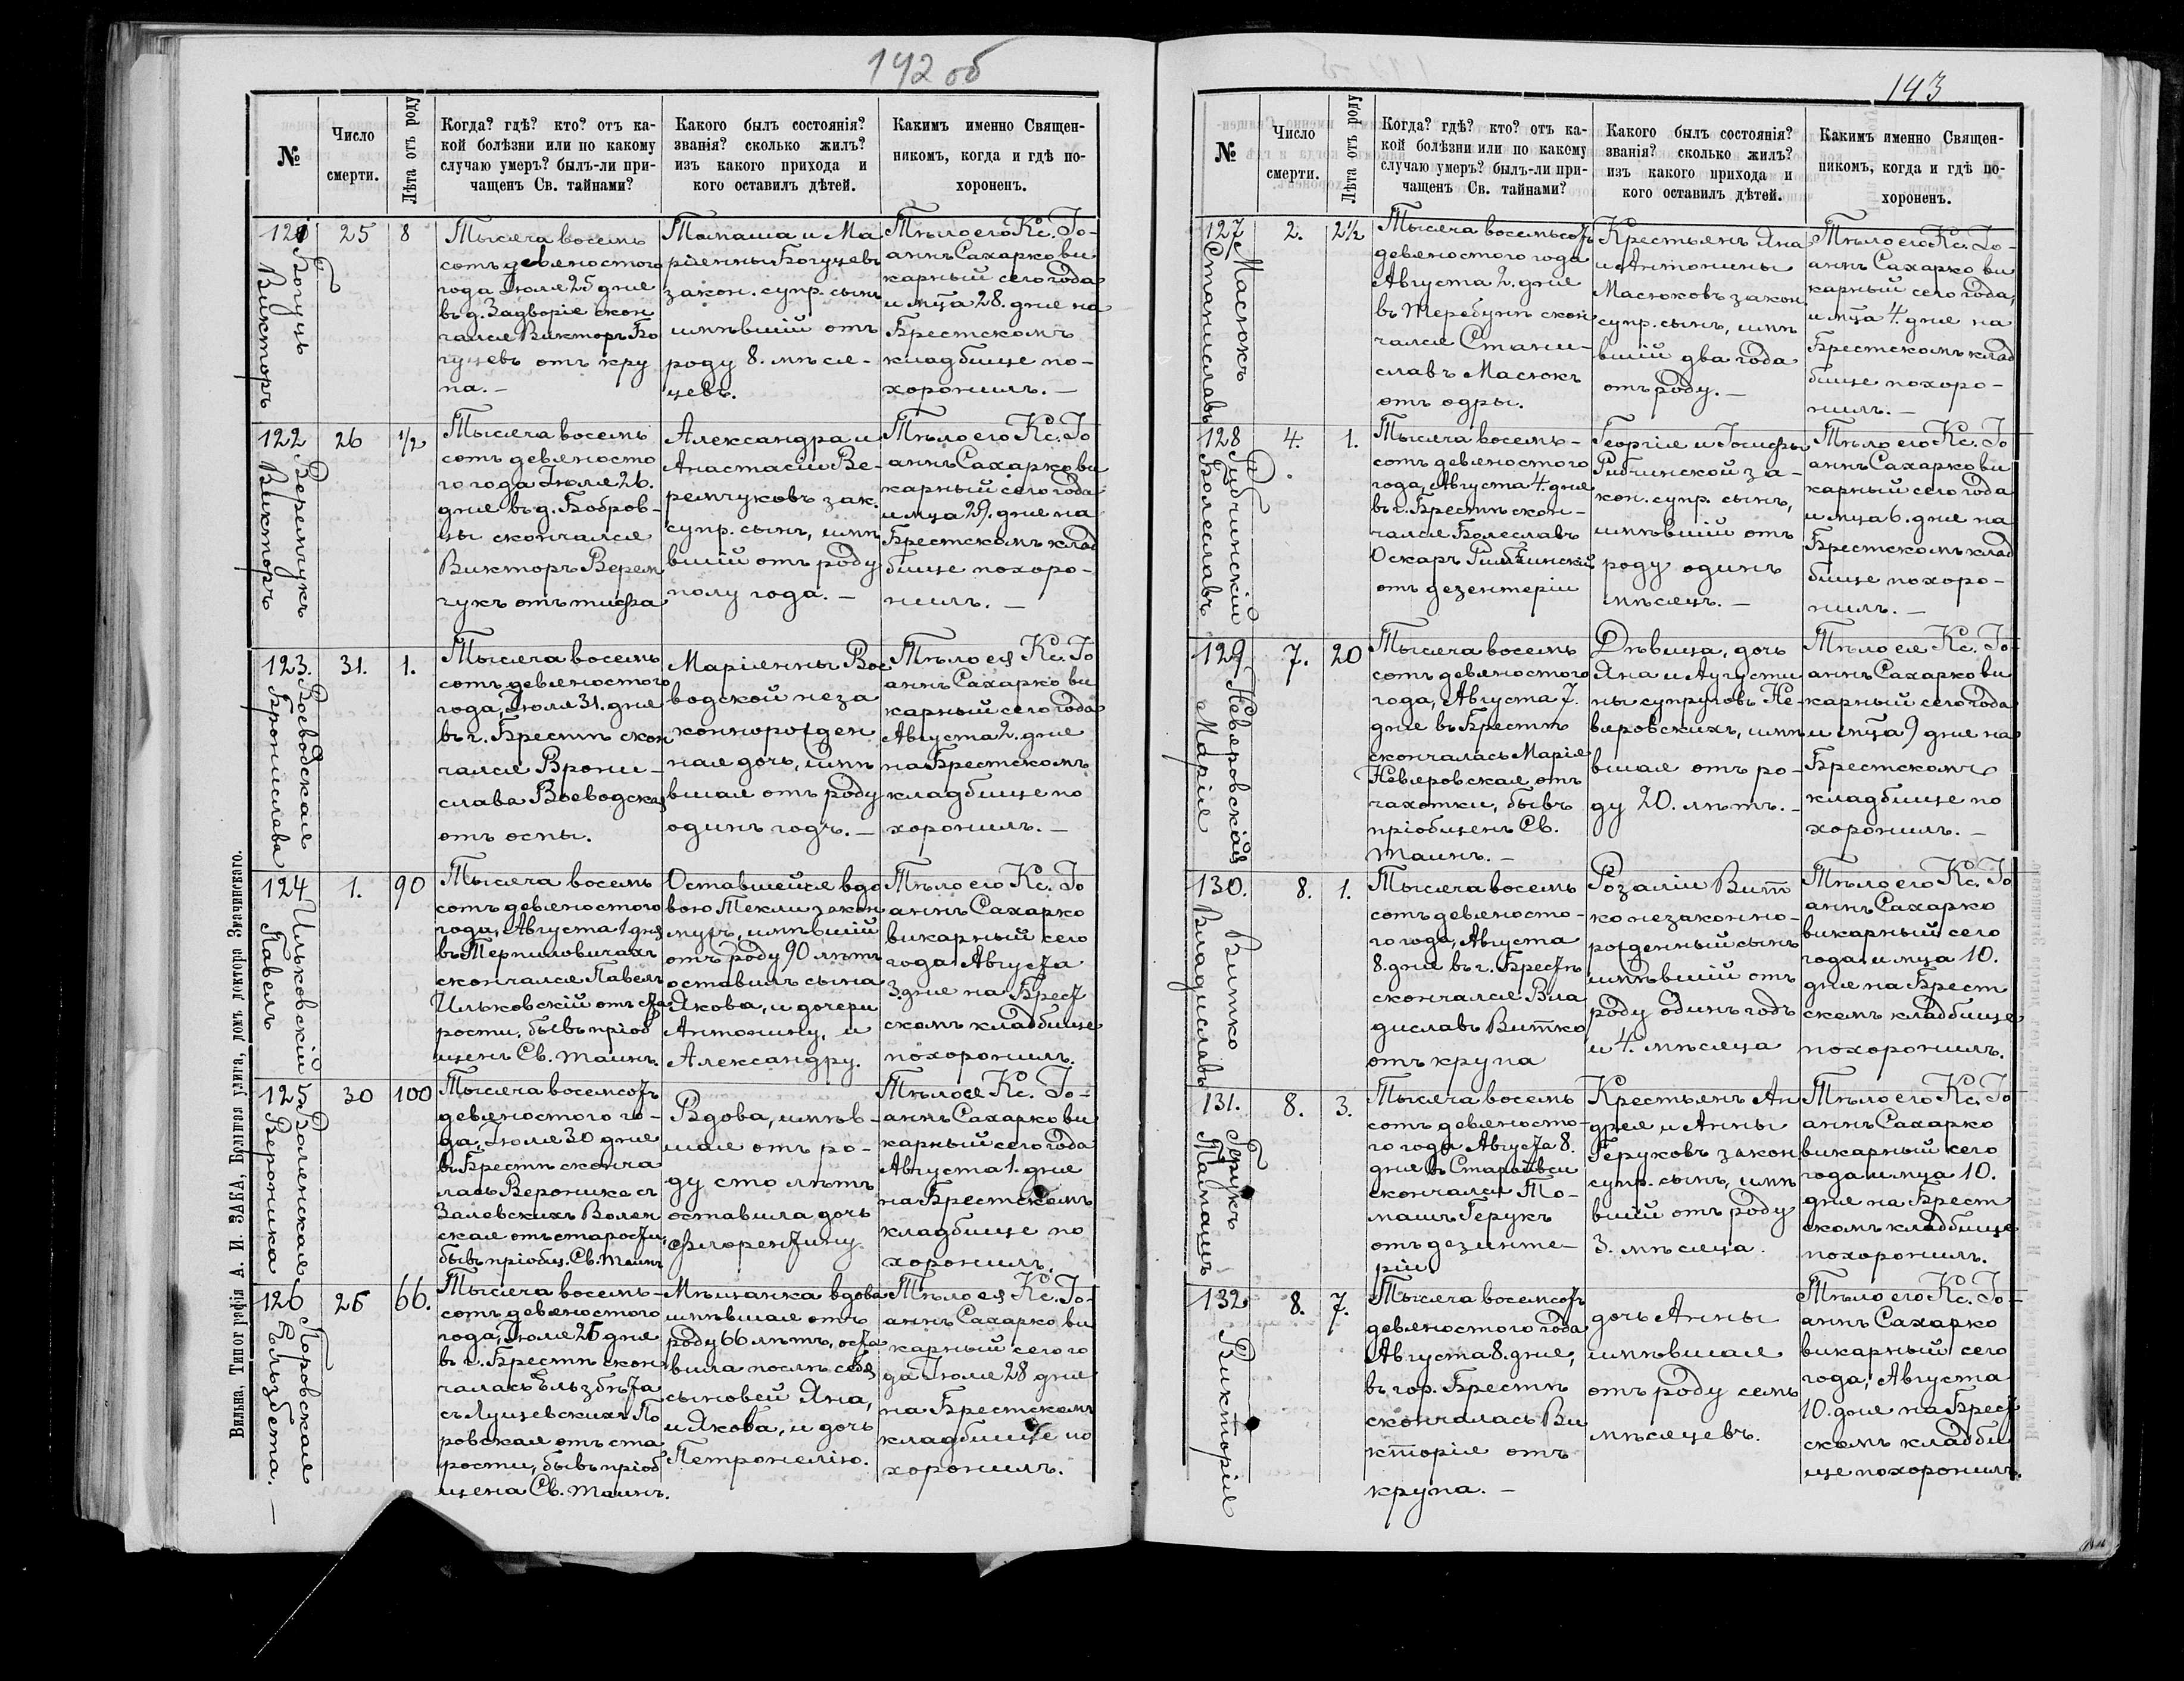 142 об
№
Число
смерти.
Лѣта отъ роду
Когда? гдѣ? кто? отъ ка-
кой болѣзни или по какому
случаю умеръ? былъ-ли при-
чащенъ Св. тайнами?
Какого былъ состоянія?
званія? сколько жилъ?
изъ какого прихода и
кого оставилъ дѣтей.
Какимъ именно Священ-
никомъ, когда и гдѣ по-
хороненъ.
121
Богуцъ
Викторъ
25
8
Тысяча восемь
сотъ девяностого
года Іюля 25 дня
въ д. Задворіе скон
чался Викторъ Бо
гуцевъ отъ кру
па. —
Томаша и Ма
ріянны Богуцевъ
закон. супр. сынъ
имѣвшій отъ
роду 8. мѣся-
цевъ.
Тѣло его Кс. Іо-
аннъ Сахарко ви
карный сего года
и мца 28. дня на
Брестскомъ
кладбище по-
хоронилъ. —
122
Веремчукъ
Викторъ
26
1/2
Тысяча восемь
сотъ девяносто
го года Іюля 26.
дня въ д. Бобров-
цы скончался
Викторъ Верем
чукъ отъ тифа
Александра и
Анастасіи Ве-
ремчуковъ зак.
супр. сынъ, имѣ
вшій отъ роду
полу года. —
Тѣло его Кс. Іо
аннъ Сахарко ви
карный сего года
и мца 29. дня на
Брестскомъ клад
бище похоро-
нилъ. —
123.
Воеводская
Бронислава
31.
1.
Тысяча восемь
сотъ девяностого
года, Іюля 31. дня
въ г. Брестѣ скон
чался Брони-
слава Воеводская
отъ оспы.
Маріянны Вое
водской неза
коннорожден
ная дочь, имѣ
вшая отъ роду
одинъ годъ. —
Тѣло ея Кс. Іо
аннъ Сахарко ви
карный сего года
Августа 2. дня
на Брестскомъ
кладбище по
хоронилъ. —
124
Ильковскій
Павелъ
1.
90
Тысяча восемь
сотъ девяностого
года, Августа 1 дня
въ Терпиловичахъ
скончался Павелъ
Ильковскій отъ ста
рости, бывъ пріоб
щенъ Св. таинъ.
Оставшейся вдо
вою Текли закон
мужъ, имѣвшій
отъ роду 90 лѣтъ
оставилъ сына
Якова, и дочери
Антонину, и
Александру.
Тѣло его Кс. Іо
аннъ Сахарко
викарный сего
года Августа
3. дня на Брест
скомъ кладбище
похоронилъ.
125
Воленская
Вероника
30
100
Тысяча восемсотъ
девяностого го-
да, Іюля 30 дня
въ Брестѣ сконча
лась Вероника съ
Залевскихъ Волен
ская отъ старости,
бывъ пріобщ. Св. таинъ
Вдова, имѣв-
шая отъ ро-
ду сто лѣтъ
оставила дочь
Флорентину.
Тѣло ея Кс. Іо-
аннъ Сахарко ви
карный сего года
Августа 1. дня
на Брестскомъ
кладбище по
хоронилъ.
126
Поровская
Ельзбета. —
26
66.
Тысяча восемь-
сотъ девяностого
года, Іюля 26 дня
въ г. Брестѣ скон
чалась Ельзбѣта
съ Луцевскихъ По
ровская отъ ста
рости, бывъ пріоб
щена Св. таинъ.
Мѣщанка вдова
имѣвшая отъ
роду 66 лѣтъ, оста
вила послѣ себя
сыновей Яна,
и Якова, и дочь
Петронелію.
Тѣло ея Кс. Іо-
аннъ Сахарко ви
карный сего го
да Іюля 28 дня
на Брестскомъ
кладбище по
хоронилъ.
Вильна, Типографія А. И. ЗАКА, Большая улица, домъ доктора Змачинскаго.
143
№
Число
смерти.
Лѣта отъ роду
Когда? гдѣ? кто? отъ ка-
кой болѣзни или по какому
случаю умеръ? былъ-ли при-
чащенъ Св. тайнами?
Какого былъ состоянія?
званія? сколько жилъ?
изъ какого прихода и
кого оставилъ дѣтей.
Какимъ именно Священ-
никомъ, когда и гдѣ по-
хороненъ.
127
Масюкъ
Станиславъ
2.
2 1/2
Тысяча восемьсотъ
девяностого года
Августа 2. дня
въ Теребунѣ скон
чался Стани-
славъ Масюкъ
отъ одры.
Крестьянъ Яна
и Антонины
Масюковъ закон.
супр. сынъ, имѣ
вшій два года
отъ роду. —
Тѣло его Кс. Іо-
аннъ Сахарко ви
карный сего года,
и мца 4. дня на
Брестскомъ клад
бище похоро-
нилъ. —
128
Рибчинскій
Болеславъ
4.
1.
Тысяча восемь-
сотъ девяностого
года, Августа 4. дня
въ г. Брестѣ скон-
чался Болеславъ
Оскаръ Рибчинскій
отъ дезентеріи
Георгія и Іосифы
Рибчинской за-
кон. супр. сынъ,
имѣвшій отъ
роду одинъ
мѣсяцъ. —
Тѣло его Кс. Іо
аннъ Сахарко ви
карный сего года
и мца 6. дня на
Брестскомъ клад
бище похоро-
нилъ. —
129
Невяровская
Марія
7.
20
Тысяча восемь
сотъ девяностого
года, Августа 7.
дня въ Брестѣ
скончалась Марія
Невяровская отъ
чахотки, бывъ
пріобщенъ Св.
таинъ. —
Дѣвица, дочь
Яна и Августи
ны супруговъ Не-
вяровскихъ, имѣ
вшая отъ ро-
ду 20. лѣтъ. —
Тѣло ея Кс. Іо-
аннъ Сахарко ви
карный сего года
и мца 9 дня на
Брестскомъ
кладбище по
хоронилъ. —
130.
Витко
Владиславъ
8.
1.
Тысяча восемь
сотъ девяносто-
го года, Августа
8. дня въ г. Брестѣ
скончался Вла
диславъ Витко
отъ крупа
Розаліи Вит
ко незаконно-
рожденный сынъ
имѣвшій отъ
роду одинъ годъ
и 4. мѣсяца
Тѣло его Кс. Іо
аннъ Сахарко
викарный сего
года и мца 10.
дня на Брест
скомъ кладбище
похоронилъ.
131.
Герукъ
Томашъ
8.
3.
Тысяча восемь
сотъ девяносто-
го года Августа 8.
дня въ Старойвси
скончался То-
машъ Герукъ
отъ дезинте-
ріи
Крестьянъ Ан
дрея и Анны
Геруковъ закон
супр. сынъ, имѣ
вшій отъ роду
3. мѣсяца.
Тѣло его Кс. Іо
аннъ Сахарко
викарный сего
года и мца 10.
дня на Брест
скомъ кладбище
похоронилъ.
132
Викторія
8.
7.
Тысяча восемсотъ
девяностого года
Августа 8. дня,
въ гор. Брестѣ
скончалась Ви
кторія отъ
крупа. —
дочь Анны
имѣвшая
отъ роду семь
мѣсяцевъ.
Тѣло его Кс. Іо-
аннъ Сахарко
викарный сего
года, Августа
10. дня на Брест
скомъ кладби
ще похоронилъ.